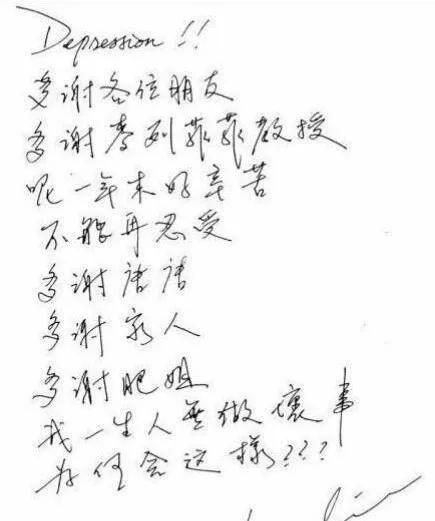 Depression !!
多謝各位朋友
多謝麥列菲菲教授
呢一年來好辛苦
不能再忍受
多謝唐唐
多謝家人
多謝肥姐
我一生人無做壞事
為何會這樣???